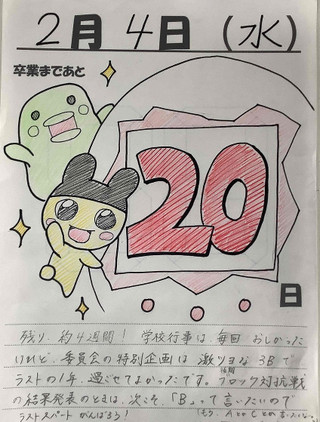 2月4日(水)
卒業まであと
20
日
残り、約4週間！ 学校行事は、毎回おしかった
けれど、委員会の特別企画は 激ツヨな 3Bで
ラストの1年、過ごせてよかったです。ブロック対抗戦
の結果発表のときは、次こそ、「Bぉ」って言いたいので
ラストスパートがんばろう！